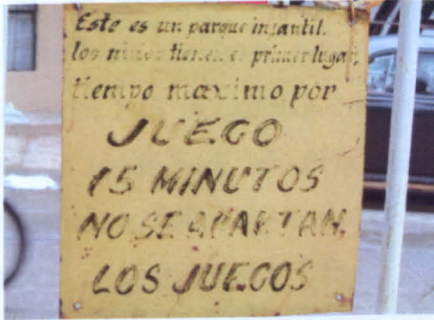 Este es un parque infantil.
los niños tienen el primer lugar,
tiempo maximo por
JUEGO
15 MINUTOS
NO SE APARTAN,
LOS JUEGOS